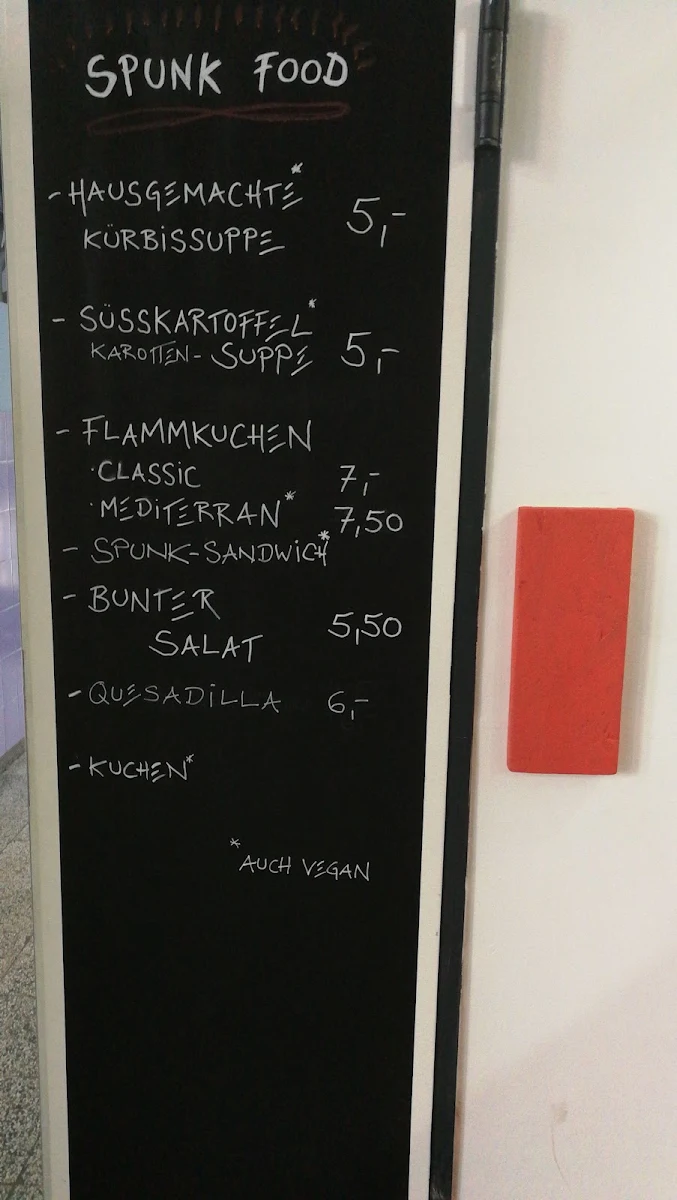 SPUNK FOOD
- HAUSGEMACHTE*
KÜRBISSUPPE 5,-
- SÜSSKARTOFFEL*
KAROTTEN- SUPPE 5,-
- FLAMMKUCHEN
·CLASSIC 7,-
·MEDITERRAN* 7,50
- SPUNK-SANDWICH*
- BUNTER
SALAT 5,50
- QUESADILLA 6,-
- KUCHEN*
*AUCH VEGAN